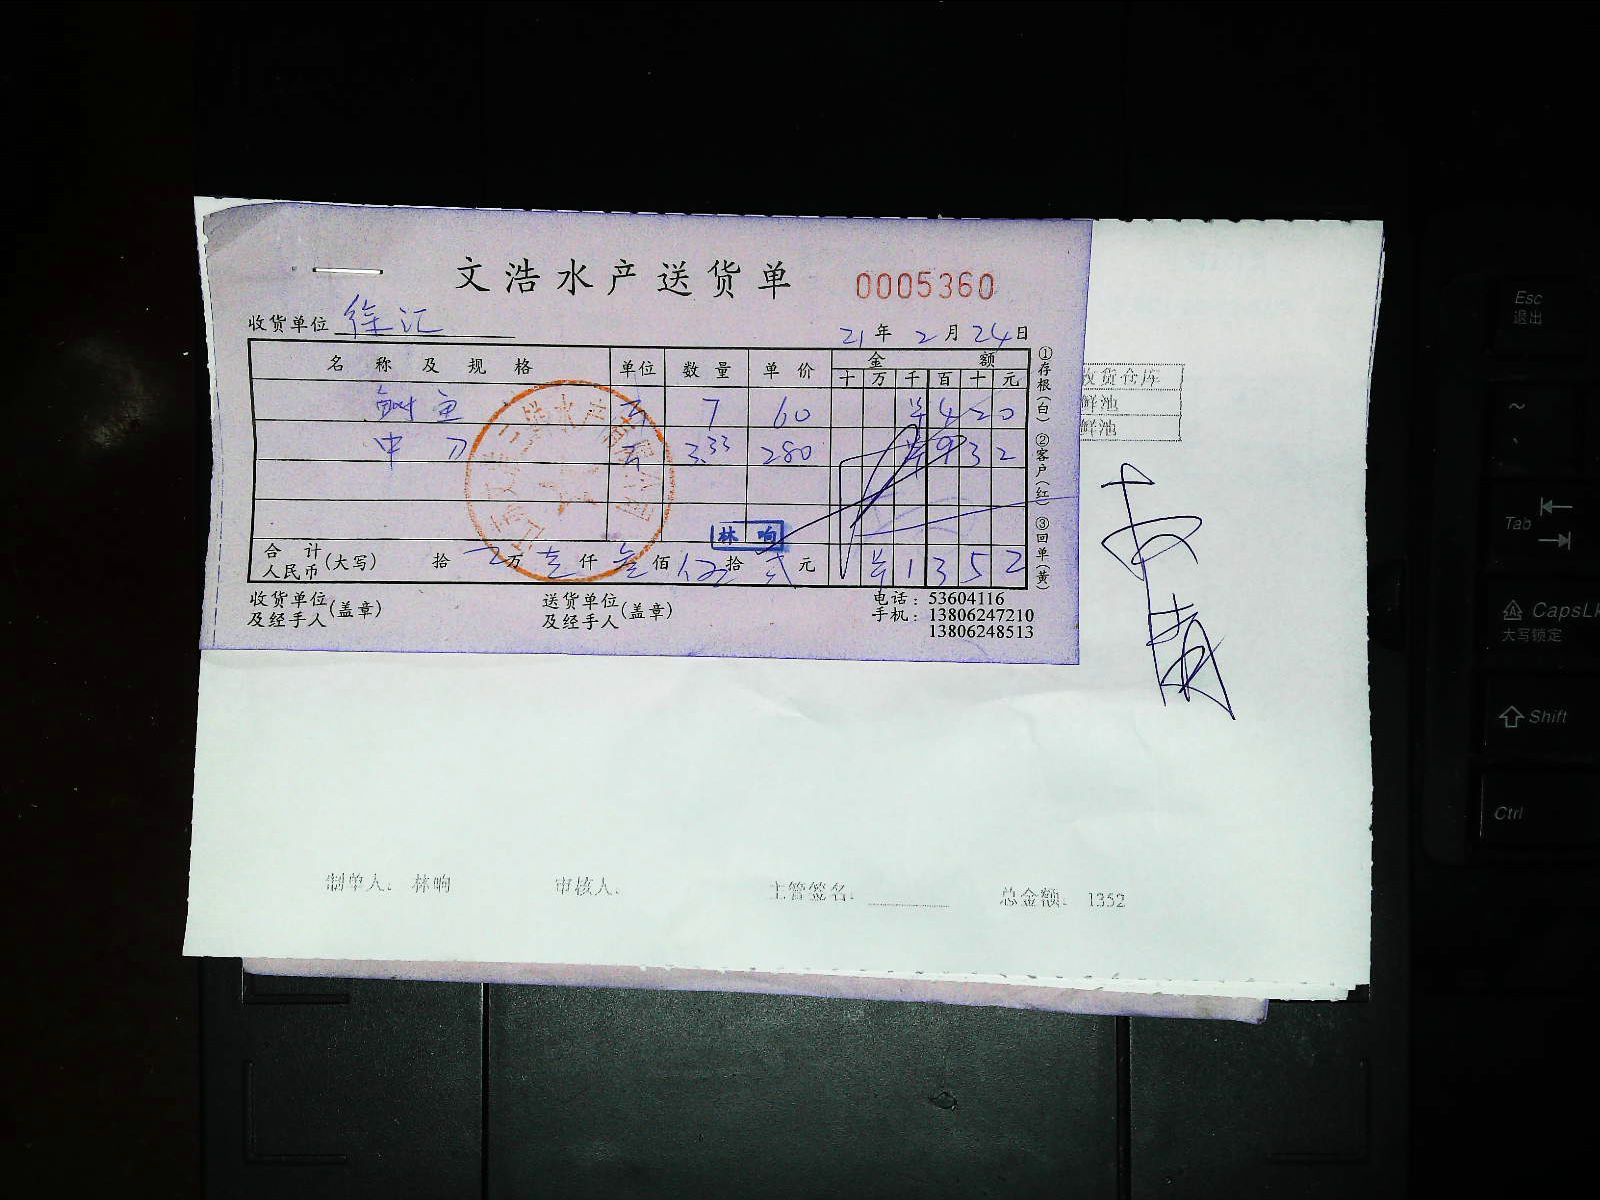 文浩水产送货单 0005360
收货单位 徐汇 21年2月24日
名称及规格 单位 数量 单价 金额
十 万 千 百 十 元
鱼 斤 7 60 ¥420
中刀 斤 3.33 280 ¥932
林响
合计人民币(大写) 拾 万 壹仟 叁佰 伍拾 贰元 ¥1352
收货单位及经手人(盖章) 送货单位及经手人(盖章) 电话:53604116
手机:13806247210
13806248513
①存根(白) ②客户(红) ③回单(黄)
收货仓库
鲜池
鲜池
制单人: 林响 审核人: 主管签名: 总金额: 1352
Esc
退出
~
Tab
CapsL
大写锁定
Shift
Ctrl